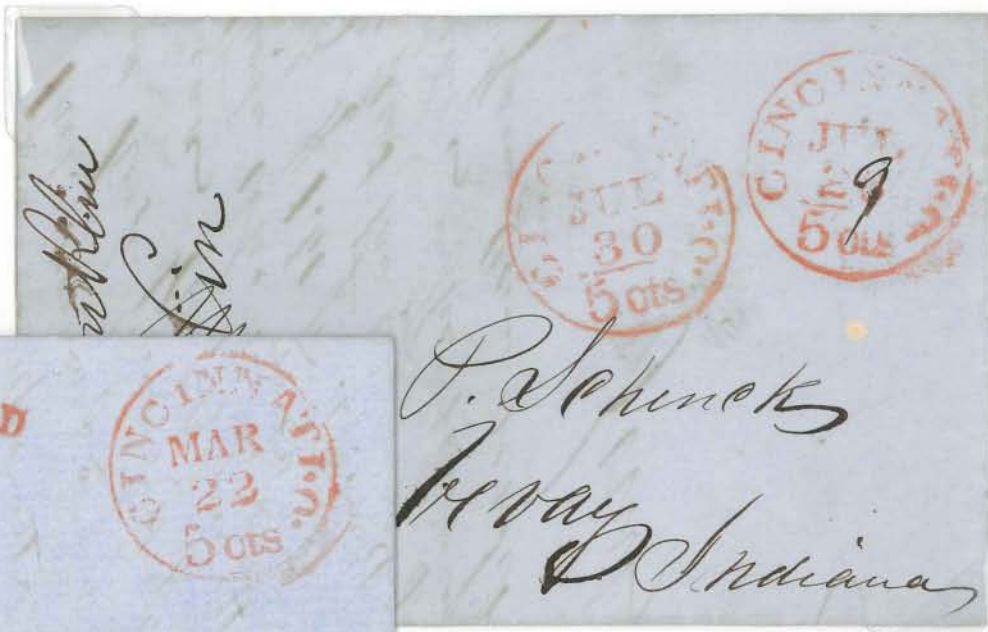 CINCINNATI.O.
JUL
30
5 cts
CINCINNATI.O.
JUL
9
5 cts
P. Schenck
Vevay
Indiana
D
CINCINNATI.O.
MAR
22
5 cts